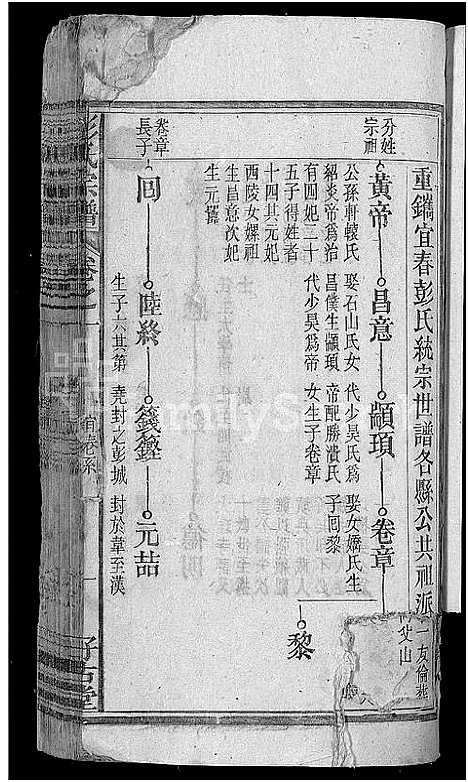 重鐫宜春彭氏統宗世譜各縣公共祖派
一友倫
父山
分姓
宗祖
黃帝
昌意
顓頊
卷章
公孫軒轅氏
紹炎帝爲治
有四妃二十
五子得姓者
十四其元妃
西陵女嫘祖
生昌意次妃
生元囂
娶石山氏女
昌僕生顓頊
代少昊爲帝
代少昊氏爲
帝配勝濆氏
女生子卷章
娶女嬌氏生
子回黎
黎
卷章
長子
回
陸終
籛鏗
元喆
生子六其第
堯封之彭城
封於韋至漢
彭氏宗譜
卷之一
一